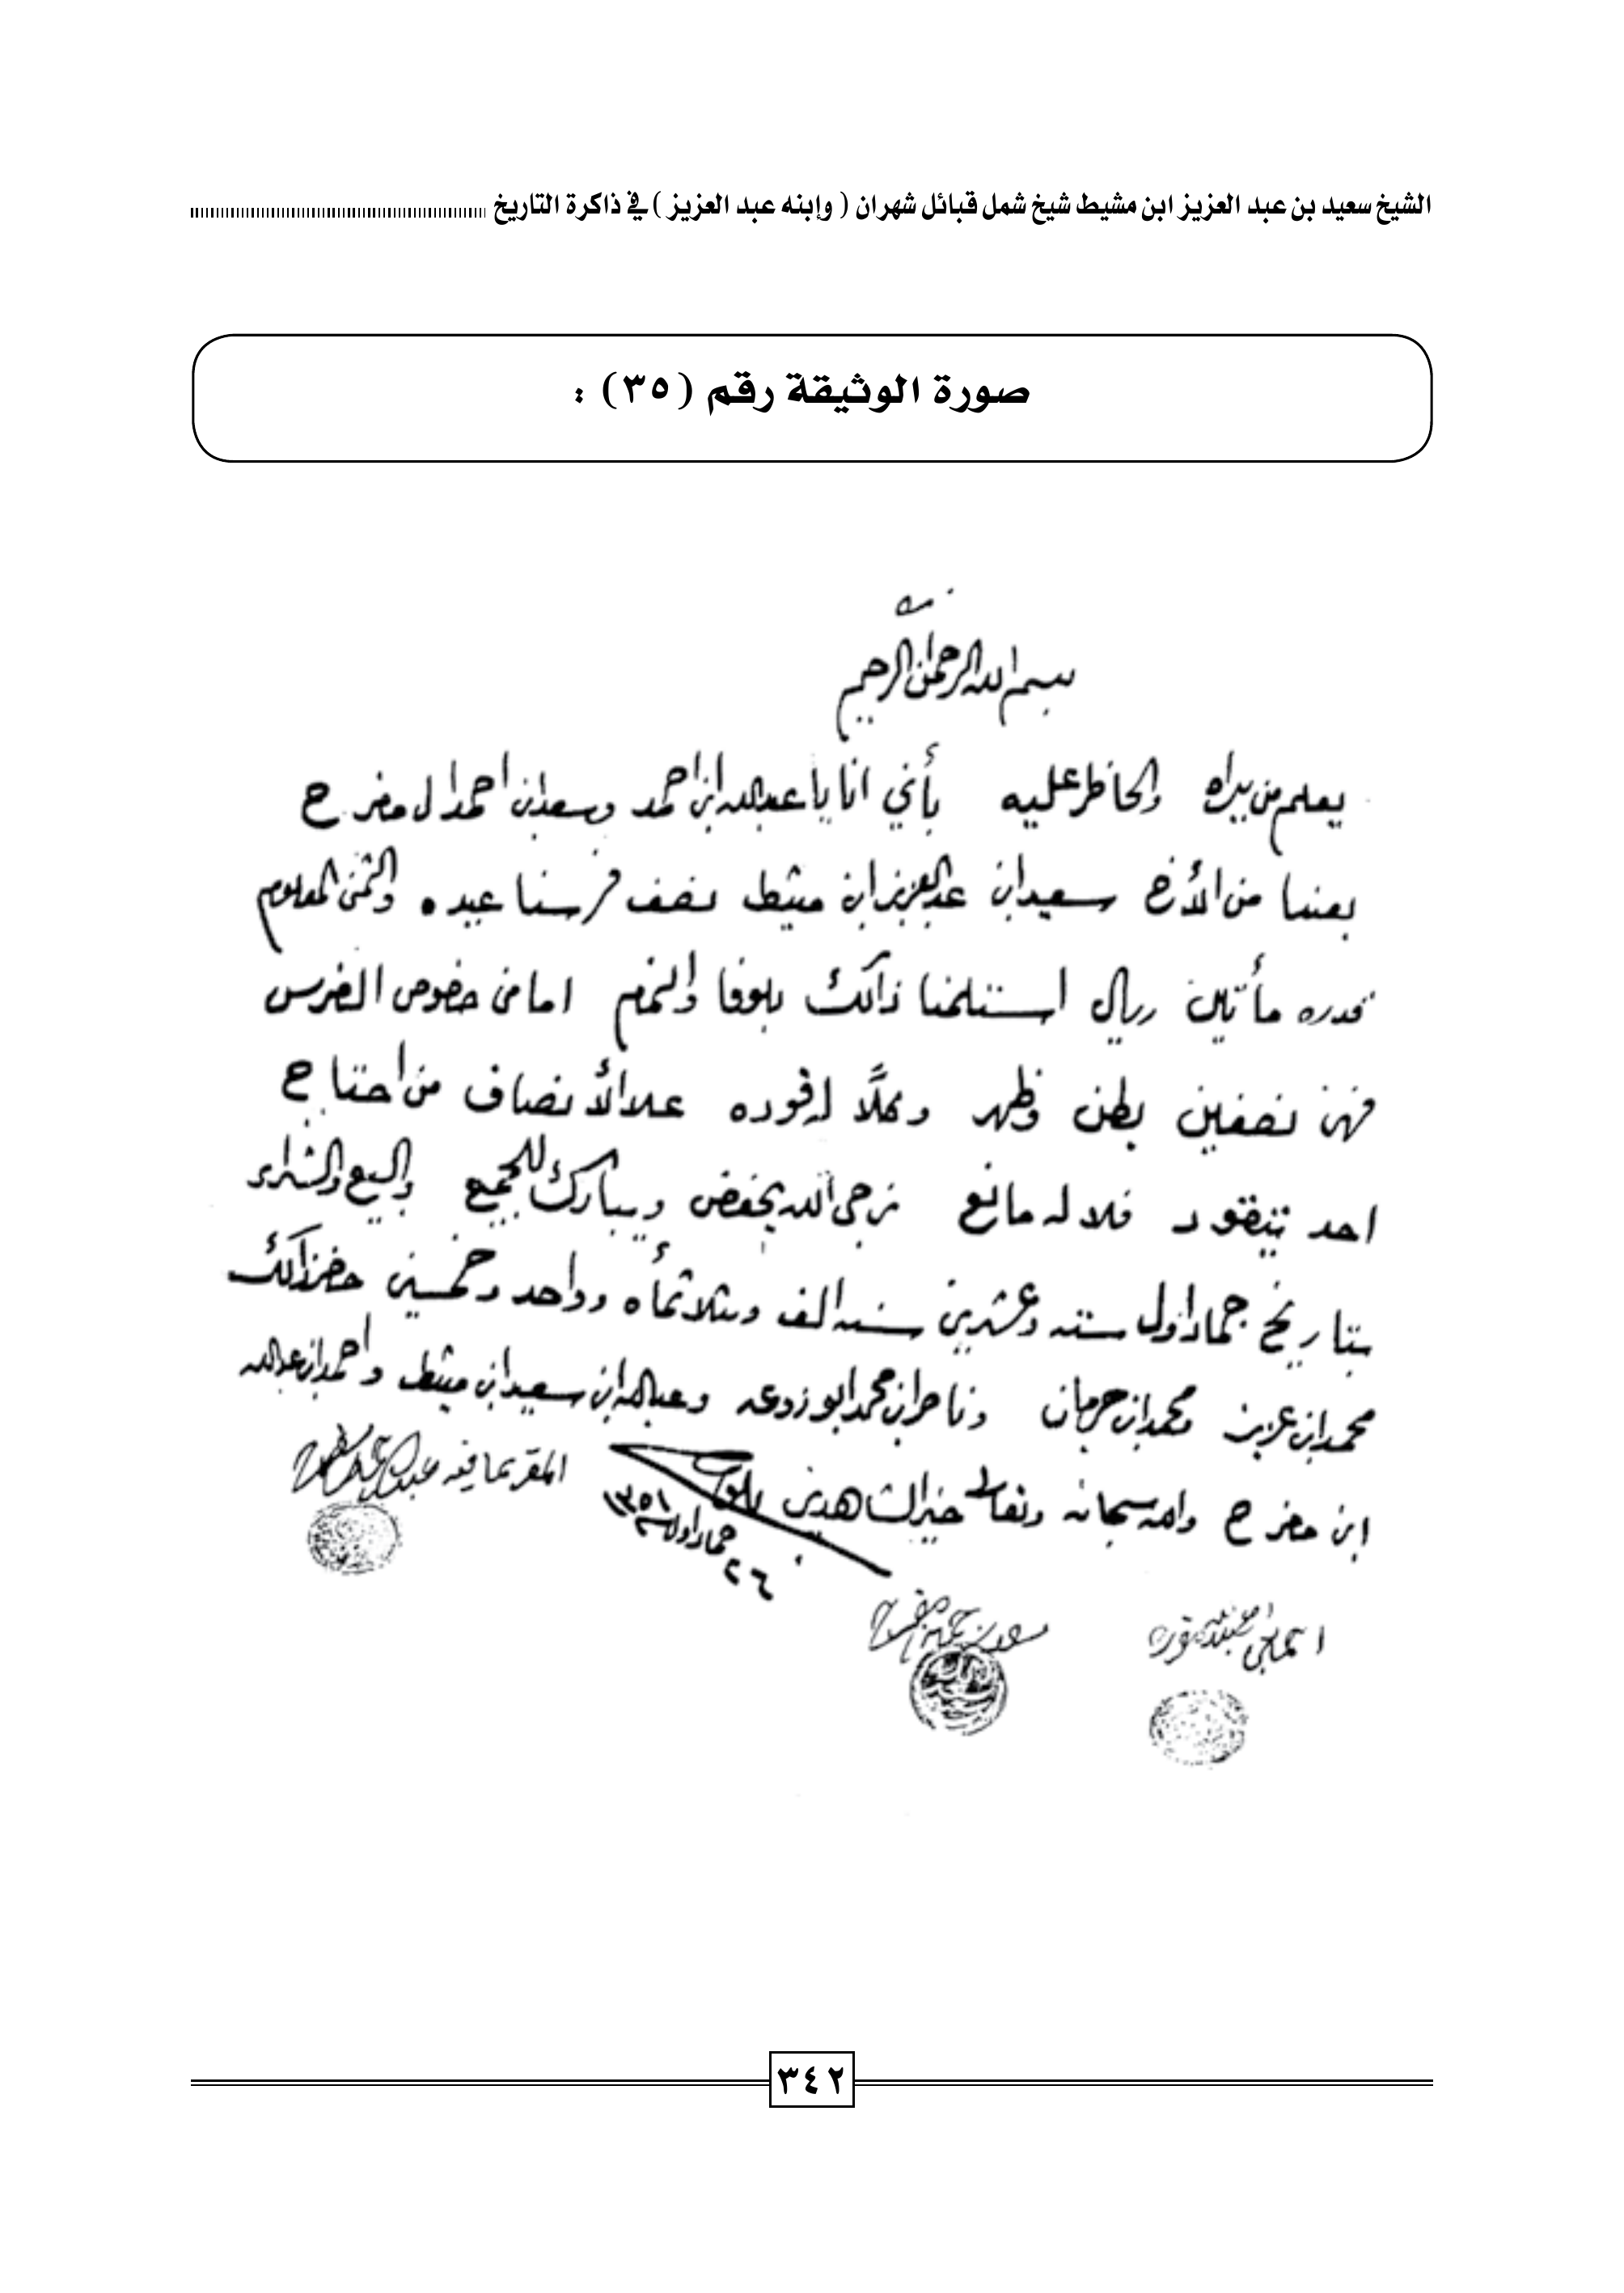 الشيخ سعيد بن عبد العزيز ابن مشيط شيخ شمل قبائل شهران ( وإبنه عبد العزيز ) في ذاكرة التاريخ
صورة الوثيقة رقم (٣٥) :
بسم الله الرحمن الرحيم
يعلم من يراه والحاظر عليه بأني انايا عبدالله ابن احمد وسعدابن احمد ال مفرح
بعنا من الأخ سعيد ابن عبدالعزيز ابن مشيط نصف فرسنا عبيده والثمن المعلوم
قدره مأتين ريال استلمنا ذالك بلوفا والتمم اما من خصوص الفرس
فهن نصفين بطن وظهر وكلًا له قوده علا الأنصاف من احتاج
احد يتقود فلا له مانع نرجى الله يحفض ويبارك للجميع والبيع والشراء
بتاريخ جماد اول سته وعشرين سنه الف وثلاثمأه وواحد وخمسين حضر ذالك
محمد ابن عزيز ومحمد ابن حرمان وناصر ابن محمد ابو زدعه وعبدالله ابن سعيد ابن مشيط واحمد ابن عبدالله
ابن مفرح والله سبحانه وتعالى خير الشاهدين
المقر بما فيه
٢٦ جماد اول سنة ١٣٥١
سعد بن احمد ال مفرح
٣٤٢